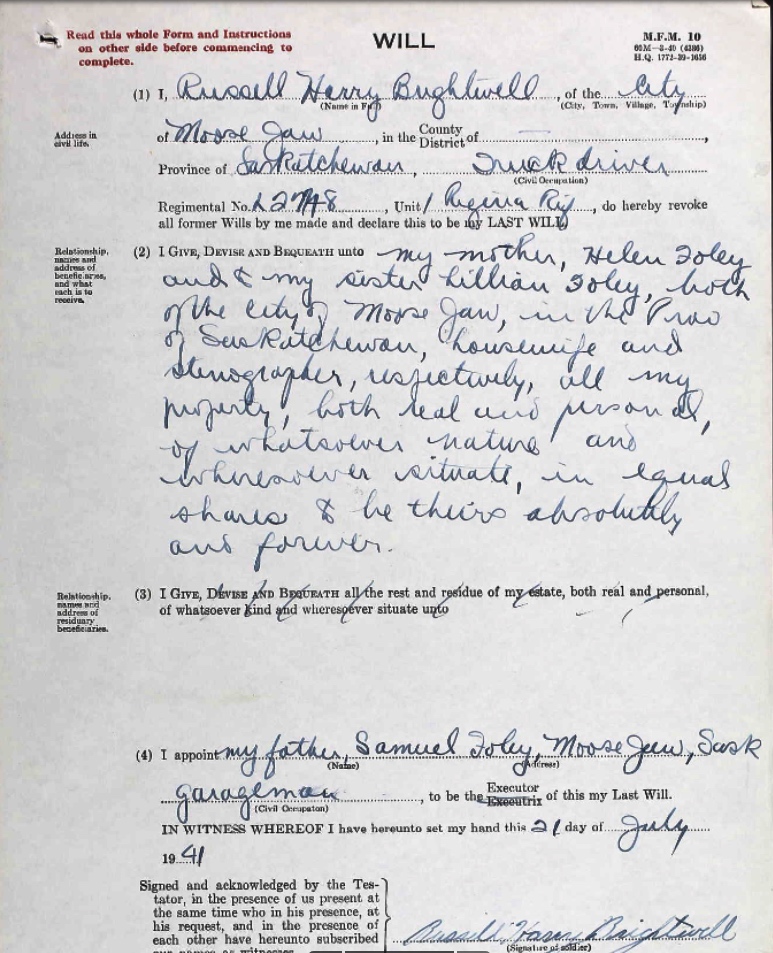 Read this whole Form and Instructions
on other side before commencing to
complete.
WILL
M.F.M. 10
60M-8-40 (4386)
H.Q. 1772-39-1656
(1) I, Russell Harry Brightwell, of the City
(Name in Full) (City, Town, Village, Township)
Address in
civil life.
of Moose Jaw, in the County District of —,
Province of Saskatchewan, Truck driver
(Civil Occupation)
Regimental No. L 2748, Unit 1 Regina Rif, do hereby revoke
all former Wills by me made and declare this to be my LAST WILL.
Relationship,
names and
address of
beneficiaries,
and what
each is to
receive.
(2) I GIVE, DEVISE AND BEQUEATH unto my mother, Helen Foley
and & my sister Lillian Foley, both
of the City of Moose Jaw, in the Prov
of Saskatchewan, housewife and
stenographer, respectively, all my
property, both real and personal,
of whatsoever nature and
wheresoever situate, in equal
shares & be theirs absolutely
and forever.
Relationship,
names and
address of
residuary
beneficiaries.
(3) I GIVE, DEVISE AND BEQUEATH all the rest and residue of my estate, both real and personal,
of whatsoever kind and wheresoever situate unto
(4) I appoint my father, Samuel Foley, Moose Jaw, Sask
(Name) (Address)
garageman, to be the Executor Executrix of this my Last Will.
(Civil Occupaton)
IN WITNESS WHEREOF I have hereunto set my hand this 21 day of July
19 41
Signed and acknowledged by the Tes-
tator, in the presence of us present at
the same time who in his presence, at
his request, and in the presence of
each other have hereunto subscribed
our names as witnesses
Russell Harry Brightwell
(Signature of soldier)